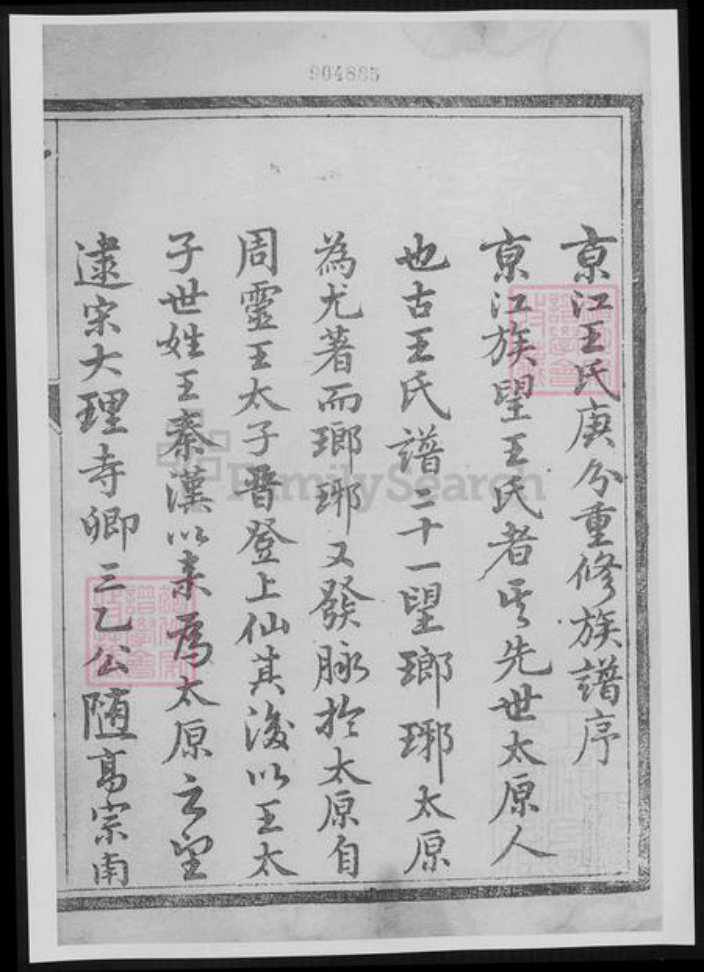 904885
京江王氏庚分重修族譜序
京江族望王氏者其先世太原人
也古王氏譜二十一望瑯琊太原
為尤著而瑯琊又發脉於太原自
周靈王太子晉登上仙其後以王太
子世姓王秦漢以来為太原之望
逮宗大理寺卿三乙公随高宗南
FamilySearch